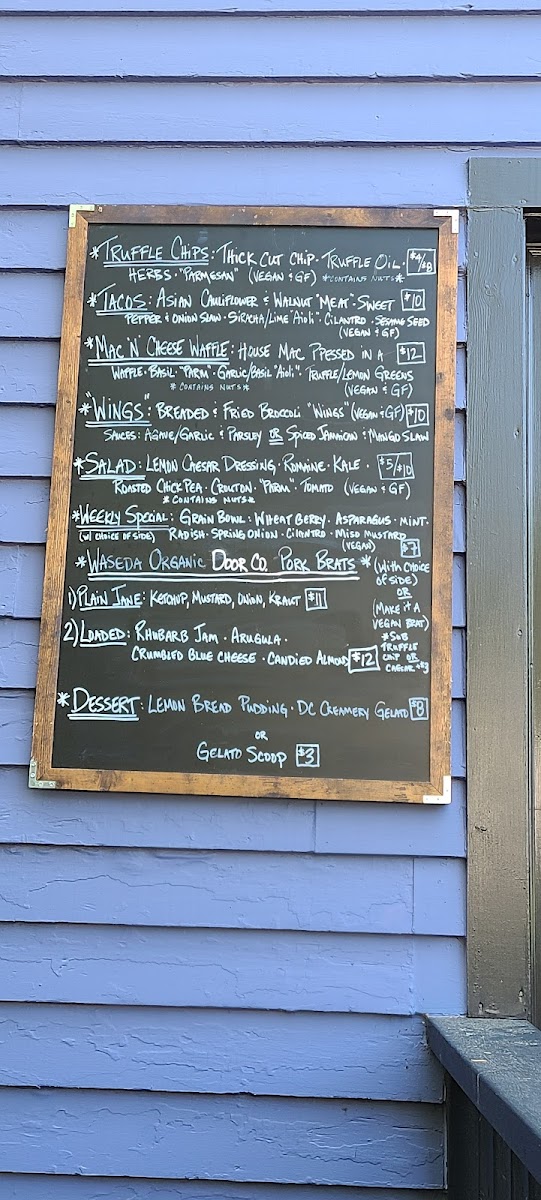 *TRUFFLE CHIPS: THICK CUT CHIP · TRUFFLE OIL · $4/$8
HERBS · "PARMESAN" (VEGAN & GF) *CONTAINS NUTS*
*TACOS: ASIAN CAULIFLOWER & WALNUT "MEAT" · SWEET $10
PEPPER & ONION SLAW · SIRACHA/LIME "AIOLI" · CILANTRO · SESAME SEED
(VEGAN & GF)
*MAC 'N' CHEESE WAFFLE: HOUSE MAC PRESSED IN A $12
WAFFLE · BASIL · "PARM" · GARLIC/BASIL "AIOLI" · TRUFFLE/LEMON GREENS
*CONTAINS NUTS* (VEGAN & GF)
*"WINGS": BREADED & FRIED BROCCOLI "WINGS" (VEGAN & GF) $10
SAUCES: AGAVE/GARLIC & PARSLEY OR SPICED JAMAICAN & MANGO SLAW
*SALAD: LEMON CAESAR DRESSING · ROMAINE · KALE · $5/$10
ROASTED CHICKPEA · CROUTON · "PARM" · TOMATO (VEGAN & GF)
*CONTAINS NUTS*
*WEEKLY SPECIAL: GRAIN BOWL: WHEAT BERRY · ASPARAGUS · MINT ·
(W/ CHOICE OF SIDE) RADISH · SPRING ONION · CILANTRO · MISO MUSTARD
(VEGAN) $7
*WASEDA ORGANIC DOOR CO. PORK BRATS*
(WITH CHOICE
OF SIDE)
OR
(MAKE IT A
VEGAN BRAT)
*SUB
TRUFFLE
CHIP OR
CAESAR +$3
1) PLAIN JANE: KETCHUP, MUSTARD, ONION, KRAUT $11
2) LOADED: RHUBARB JAM · ARUGULA ·
CRUMBLED BLUE CHEESE · CANDIED ALMOND $12
*DESSERT: LEMON BREAD PUDDING · DC CREAMERY GELATO $8
OR
GELATO SCOOP $3